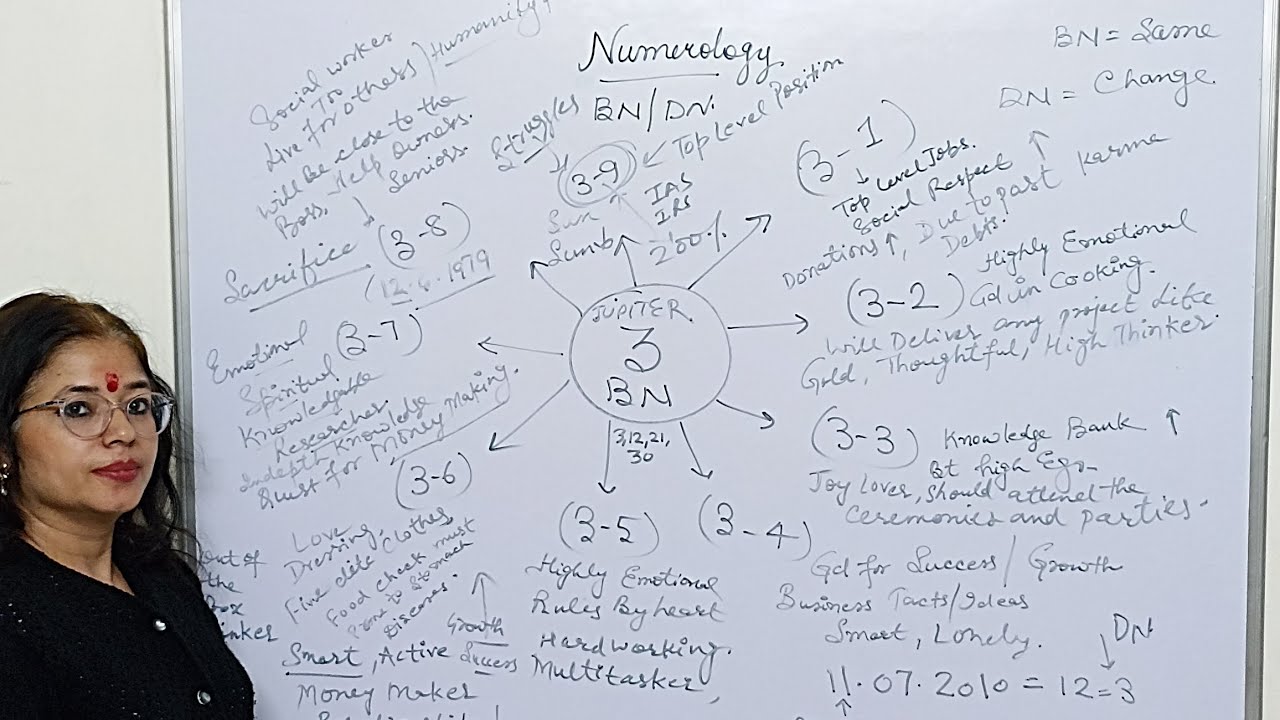 Numerology
BN/DN.
BN = Same
DN = Change.
Social worker
Too
Live for others / Humanity
Will Be close to the
Boss, Help Owners.
Seniors.
Sacrifice (3-8)
(12.6.1979
Struggles
(3-9) Top Level Position
Sun IAS
IRS
Lumb 200%
(3-1)
Top Level Jobs.
Social Respect
Donations↑, Due to past Karma
Debts.
(3-2) Highly Emotional
Gd in Cooking.
Will Deliver any project Like
Gold, Thoughtful, High Thinker.
JUPITER
3
BN
3,12,21,
30
(3-3) Knowledge Bank ↑
Bt high Ego
Joy Lover, should attend the
ceremonies and parties.
(3-4)
Gd for Success / Growth
Business Tacts/Ideas
Smart, Lonely.
DN
11.07.2010 = 12 = 3
(3-5)
Highly Emotional
Rules By heart
Hardworking.
Multitasker,
(3-6)
Love
Dressing,
Fine cloths Clothes
Food check must
Prone to Stomach
diseases.
Growth
Smart, Active Success
Money Maker
out of
the
Box
Emotional (3-7)
Spiritual
Knowledgable
Researcher.
Indepth Knowledge
Quest for Money Making.